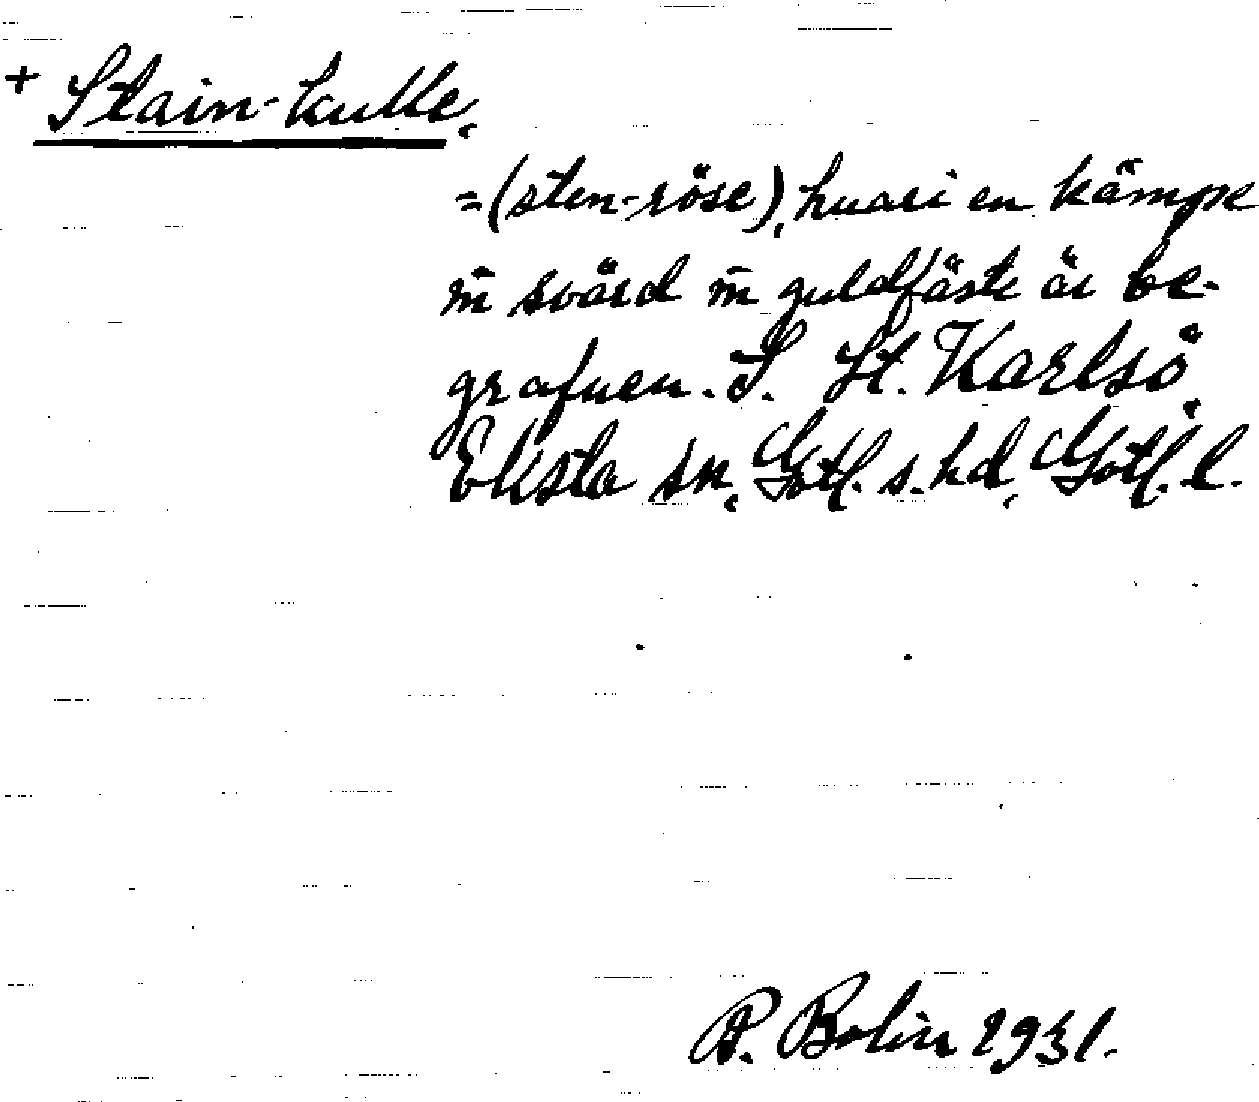 + Stain-kulle,
=(sten-röse), huari en kämpe
m̄ svärd m̄ guldfäste är be-
grafuen. S. St. Karlsö,
Eksta sn, Gotl. s. hd, Gotl. l.
P. Bolin 1931.